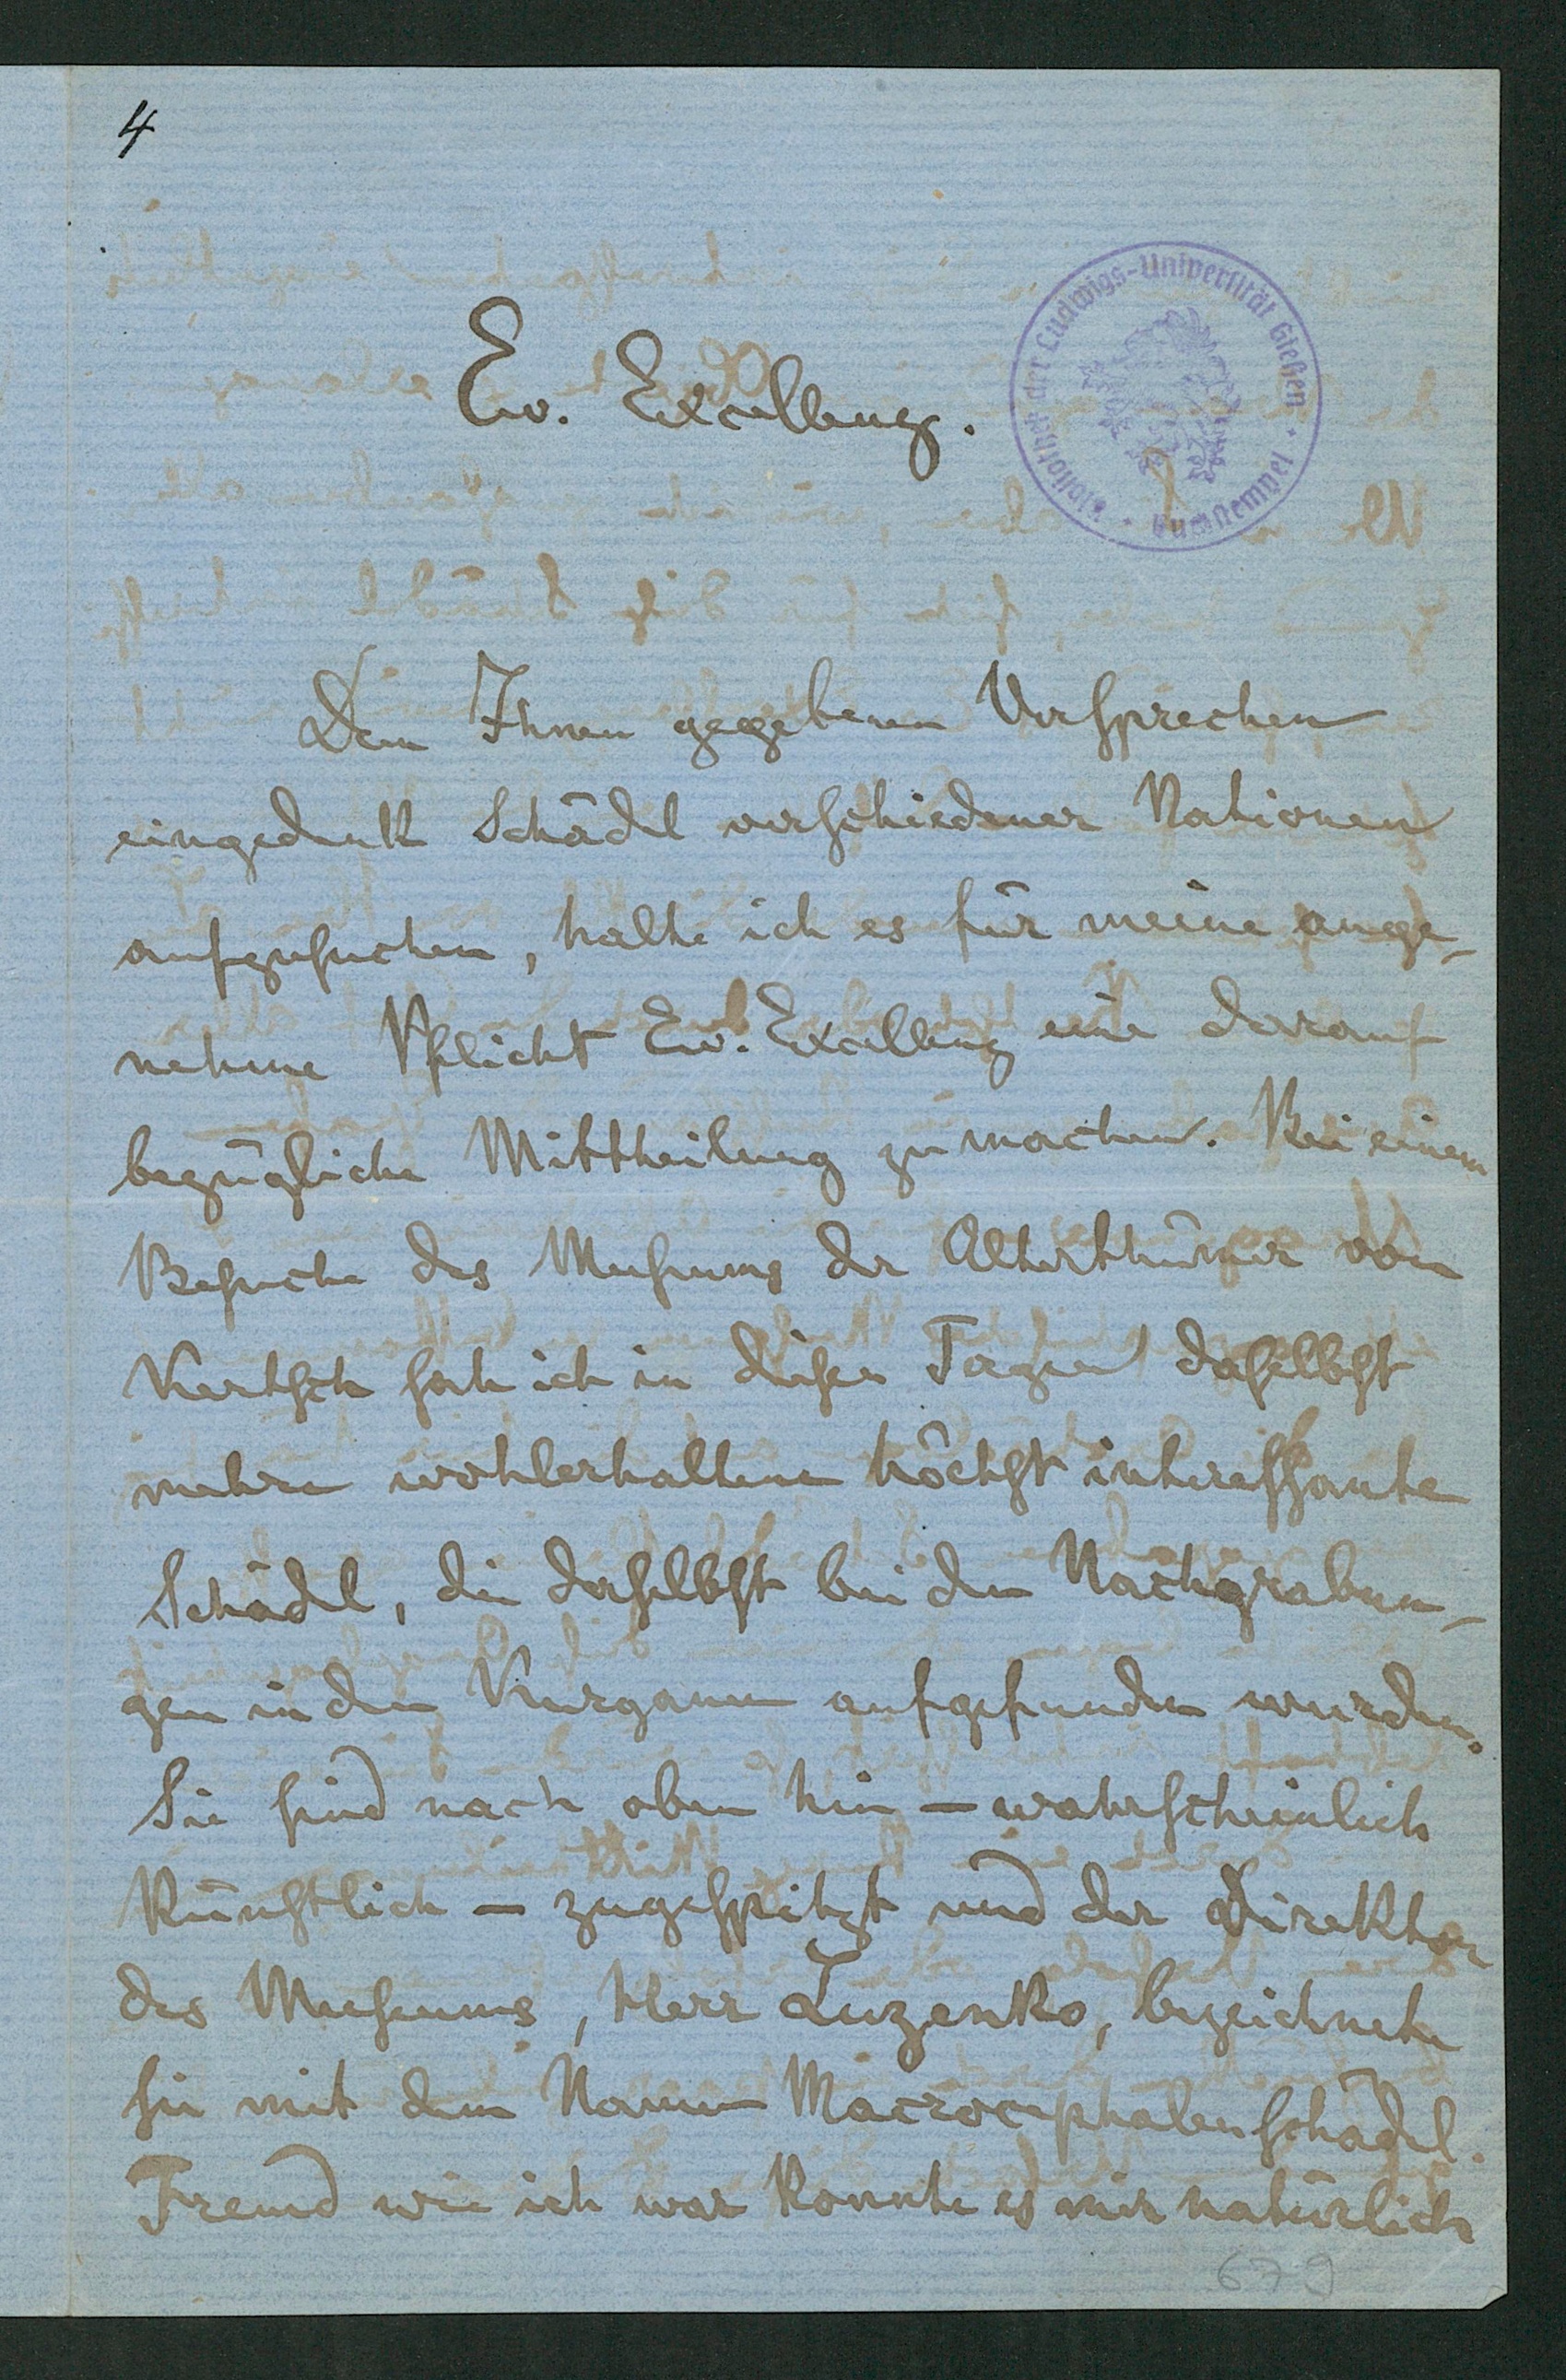 4
Bibliothek der Ludwigs-Universität Gießen · Buchstempel ·
Ew. Excellenz.
Dem Ihnen gegebenen Versprechen
eingedenk Schädel verschiedener Nationen
aufzusuchen, halte ich es für meine ange-
nehme Pflicht Ew. Excellenz eine darauf
bezügliche Mittheilung zu machen. Bei einem
Besuche des Museums der Alterthümer von
Kertsch sah ich in diesen Tagen daselbst
mehre wohlerhaltene höchst interessante
Schädel, die daselbst bei den Nachgrabun-
gen in den Kurganen aufgefunden wurden.
Sie sind nach oben hin – wahrscheinlich
künstlich – zugespitzt und der Direktor
des Museums, Herr Luzenko, bezeichnete
sie mit dem Namen Macrocephalenschädel.
Fremd wie ich war konnte es mir natürlich
679